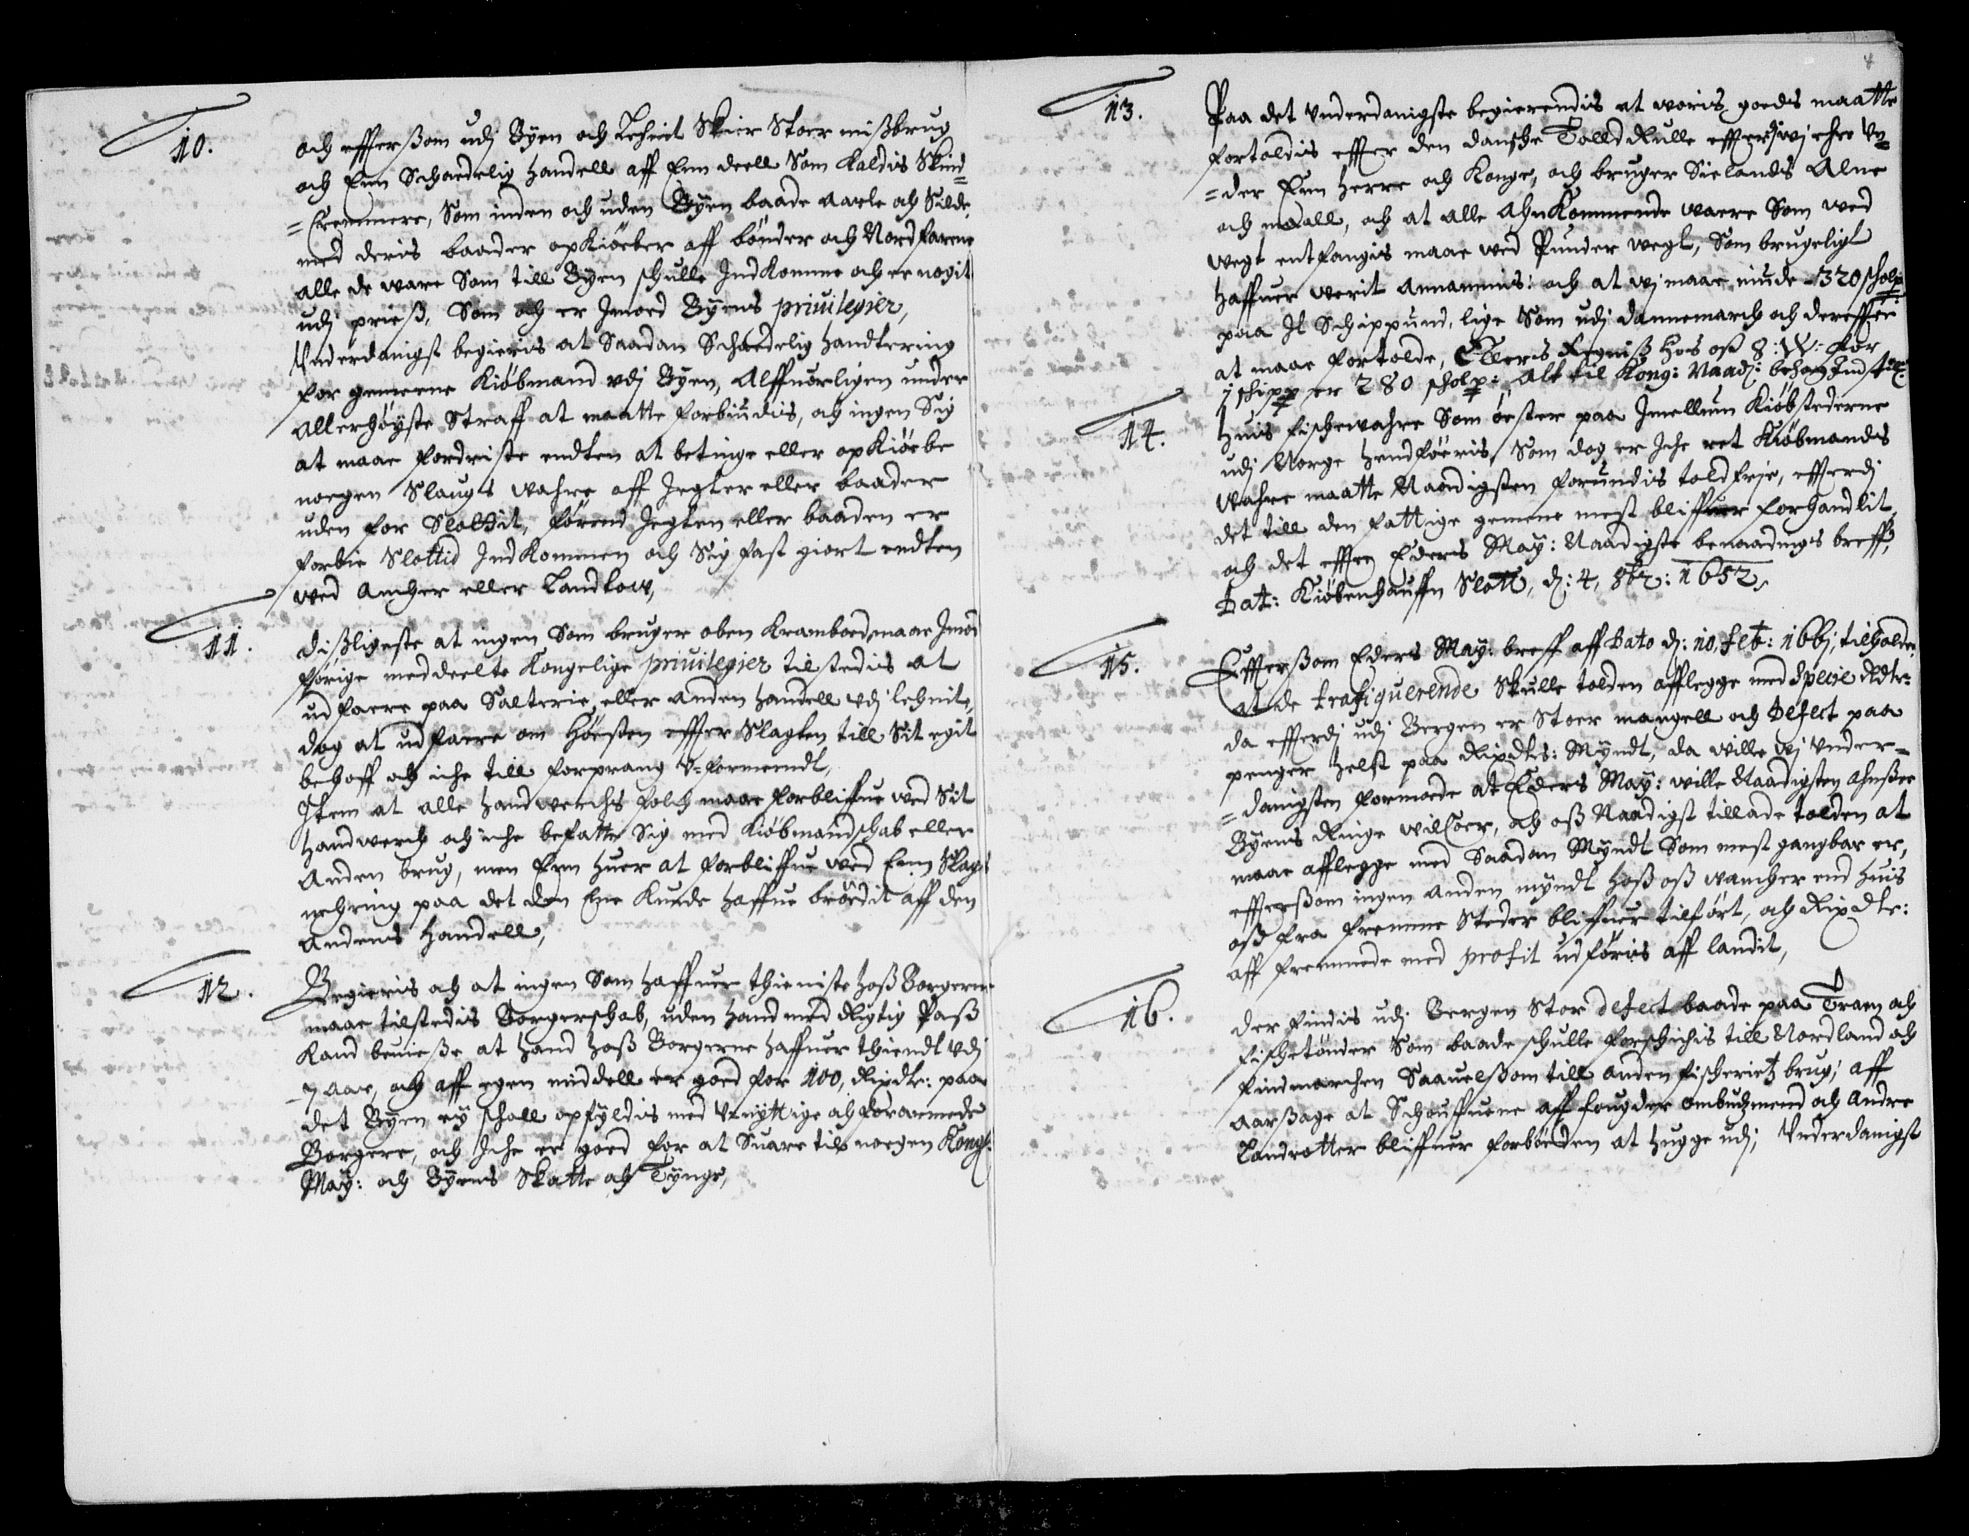 10.
och effterßom udj Byen och Lehnit Skier Stoer mißbrug
och Een Schaedelig handell aff Een deell Som kaldis Skind=
=kremmere, Som inden och uden Byen baade aarle och Silde,
med deris baader opkiøeber aff bønder och Nordfarene
alle de ware Som till Byen schulle Indkomme och er nogit
udj prieß, Som och er Jmoed Byens privilegier,
Vnderdanigst begieris at Saadan Schaedelig handtering
for gemeene Kiøbmand udj Byen, Alffuorligen under
allerhøyste Straff at maatte forbiudis, och ingen Sig
at maae fordriste endten at betinge eller opkiøebe
noegen Slaugs wahre aff Jegter eller baader
uden for Slottit, førend Jegten eller baaden er
forbie Slottid Indkommen och Sig fast giort endten
wed Ancher eller Landtow,
11.
dißligeste at ingen Som bruger oben kramboed, maae Jmod
forige meddeelte Kongelige privilegier tilstedis at
udfaere paa Salterie, eller anden handell udj lehnit,
dog at udfaere om høesten effter Slagten till Sit egit
behoff och iche till forprang V-formeendt,
Item at alle handwerchs folch maae forbliffue wed Sit
handwerch och iche befatte Sig med Kiøbmandschab eller
anden brug, men Een huer at forbliffue wed Een Slags
nehring paa det den Ene kunde haffue brødit aff den
andens handell,
12.
Begieris och at ingen Som haffuer thieniste hoß Borgerne
maae tilstedis Borgerschab, uden hand med Rigtig Paß
kand beuieße at hand hoß Borgerne haffuer thiendt udj
7 aar, och aff egen middell er goed for 100, Rixdlr: paa
det Byen ey schall opfyldis med V-nyttige och forarmede
Borgere, och Jche er goed for at Suare til noegen Kongl:
May: och Byens Skatte och Tynge,
13.
Paa det underdanigste begierendis at woris goeds maatte
fortoldis effter den danshe Told Rulle effterdj wj ehre Vn=
=der Een herre och Konge, och bruger Sielands Alne
och maall, och at alle ahnkommende waere Som wed
wegt entfangis maae wed Punder wegt, Som brugeligt
haffuer werit annammis: och at wj maae niude 320 schol℔
paa Jt Schippund, lige Som udj dannemarch och dereffter
at maae fortolde, Ellers Regniß hos oß 8: W: for
1 schip℔ er 280 schol℔: Alt til Kong: Naadj: behag Indstillt:
14.
Huis fischewahre Som øester paa Jmellum Kiøbstederne
udj Norge henføeris, Som dog er Jche ret Kiøbmands
wahre maatte Naadigsten forundis toldfrje, effterdj
det till den fattige gemene mest bliffuer forhandlit,
och det effter Eders May: Naadigste benaadnings breff,
Dat: Kiøbenhauffn Slott, d: 4, 8br: 1652,
15.
Effterßom Eders May: breff aff Dato d: 10, Feb: 1661, tilholder,
at de trafiquerende Skulle tolden afflegge med Specie Rdlr:
da effterdj udj Bergen er Stoer mangell och Defect paa
penger helst paa Rixdlrs: Myndt, da wille wj under=
=danigsten formoede at Eders May: wille Naadigsten ahnßee
Byens Ringe wilkoer, och oß Naadigst tillade tolden at
maae afflegge med Saadan Myndt Som mest gangbar er,
effterßom ingen anden myndt hoß oß wancher end huis
oß fra fremme Steder bliffuer tilført, och Rixdlr:
aff fremmede med profit udføris aff landit,
16.
der findis udj Bergen Stor defect baade paa Traen och
fischetønder Som baade schulle forschichis till Nordland och
findmarchen Saauelßom till anden fischerietz brug; aff
aarßage at Schouffuene aff fougder ombudzmend och Andre
Landrotter bliffuer forbøeden at hugge udj, Vnderdanigst